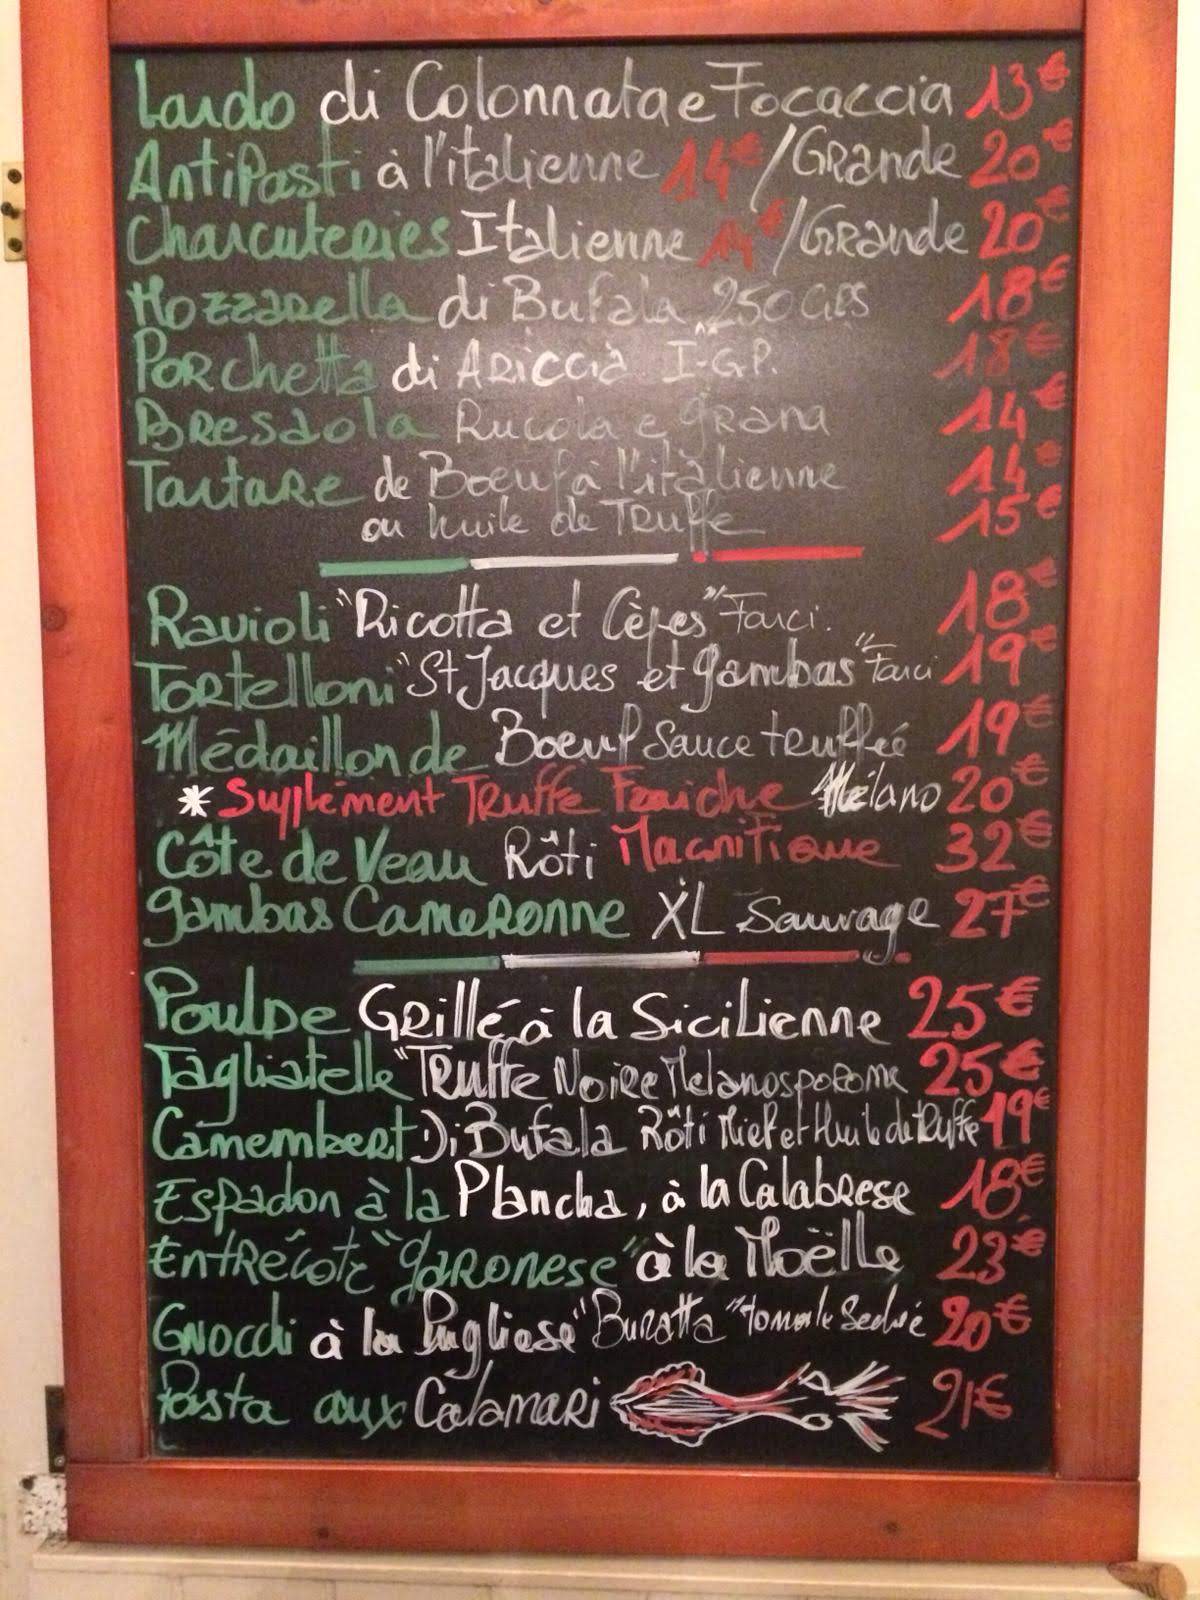 Lardo di Colonnata e Focaccia 13€
AntiPasti à l'italienne 14€/GRande 20€
Charcuteries Italienne 14€/GRande 20€
Mozzarella di Bufala 250GRS 18€
Porchetta di Ariccià I.G.P. 18€
Bresaola Rucola e grana 14€
Tartare de Boeuf à l'italienne 14€
ou huile de Truffe 15€
Ravioli "Ricotta et Cèpes" Farci. 18€
Tortelloni "St Jacques et gambas" Farci 19€
Médaillon de Boeuf Sauce truffée 19€
* Suplément Truffe Fraiche Mélano 20€
Côte de Veau Rôti Magnifique 32€
gambas Cameronne XL Sauvage 27€
Poulpe Grillé à la Sicilienne 25€
Tagliatelle "Truffe Noire Melanosporome 25€
Camembert Di Bufala Rôti Miel et Huile de Truffe 19€
Espadon à la Plancha, à la Calabrese 18€
Entrécôte "garonese" à la Moëlle 23€
Gnocchi à la Pugliese "Buratta" tomate Seché 20€
Pasta aux Calamari 21€